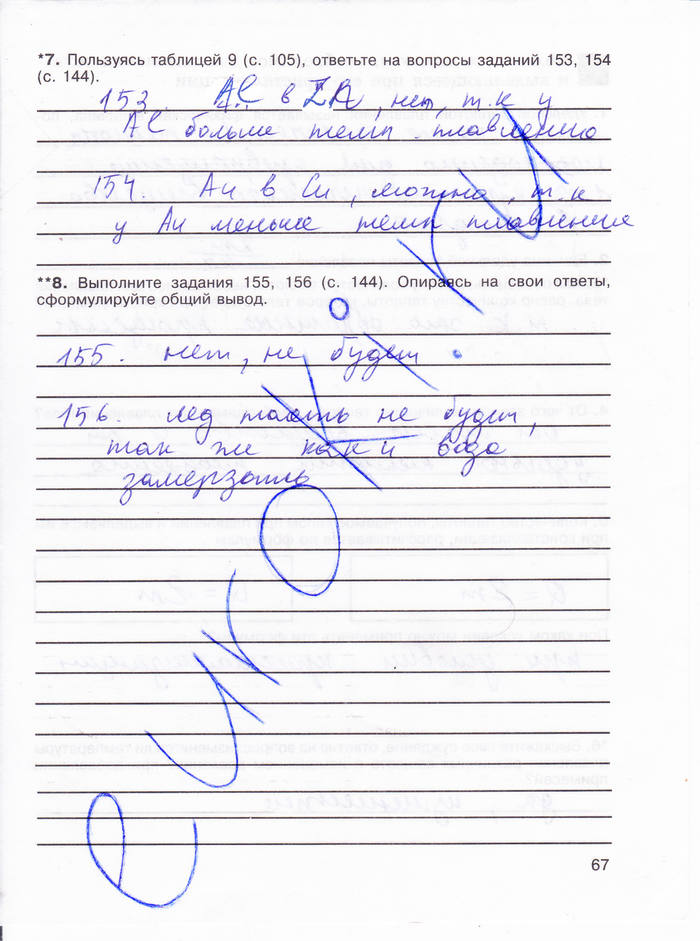 *7. Пользуясь таблицей 9 (с. 105), ответьте на вопросы заданий 153, 154
(с. 144).
153. Al в , нет, т.к у
Al больше темп. плавления
154. Au в Cu, можно, т.к
у Au меньше темп плавления
**8. Выполните задания 155, 156 (с. 144). Опираясь на свои ответы,
сформулируйте общий вывод.
155. нет, не будет.
156. лёд таять не будет,
так же как и вода
замерзать
67